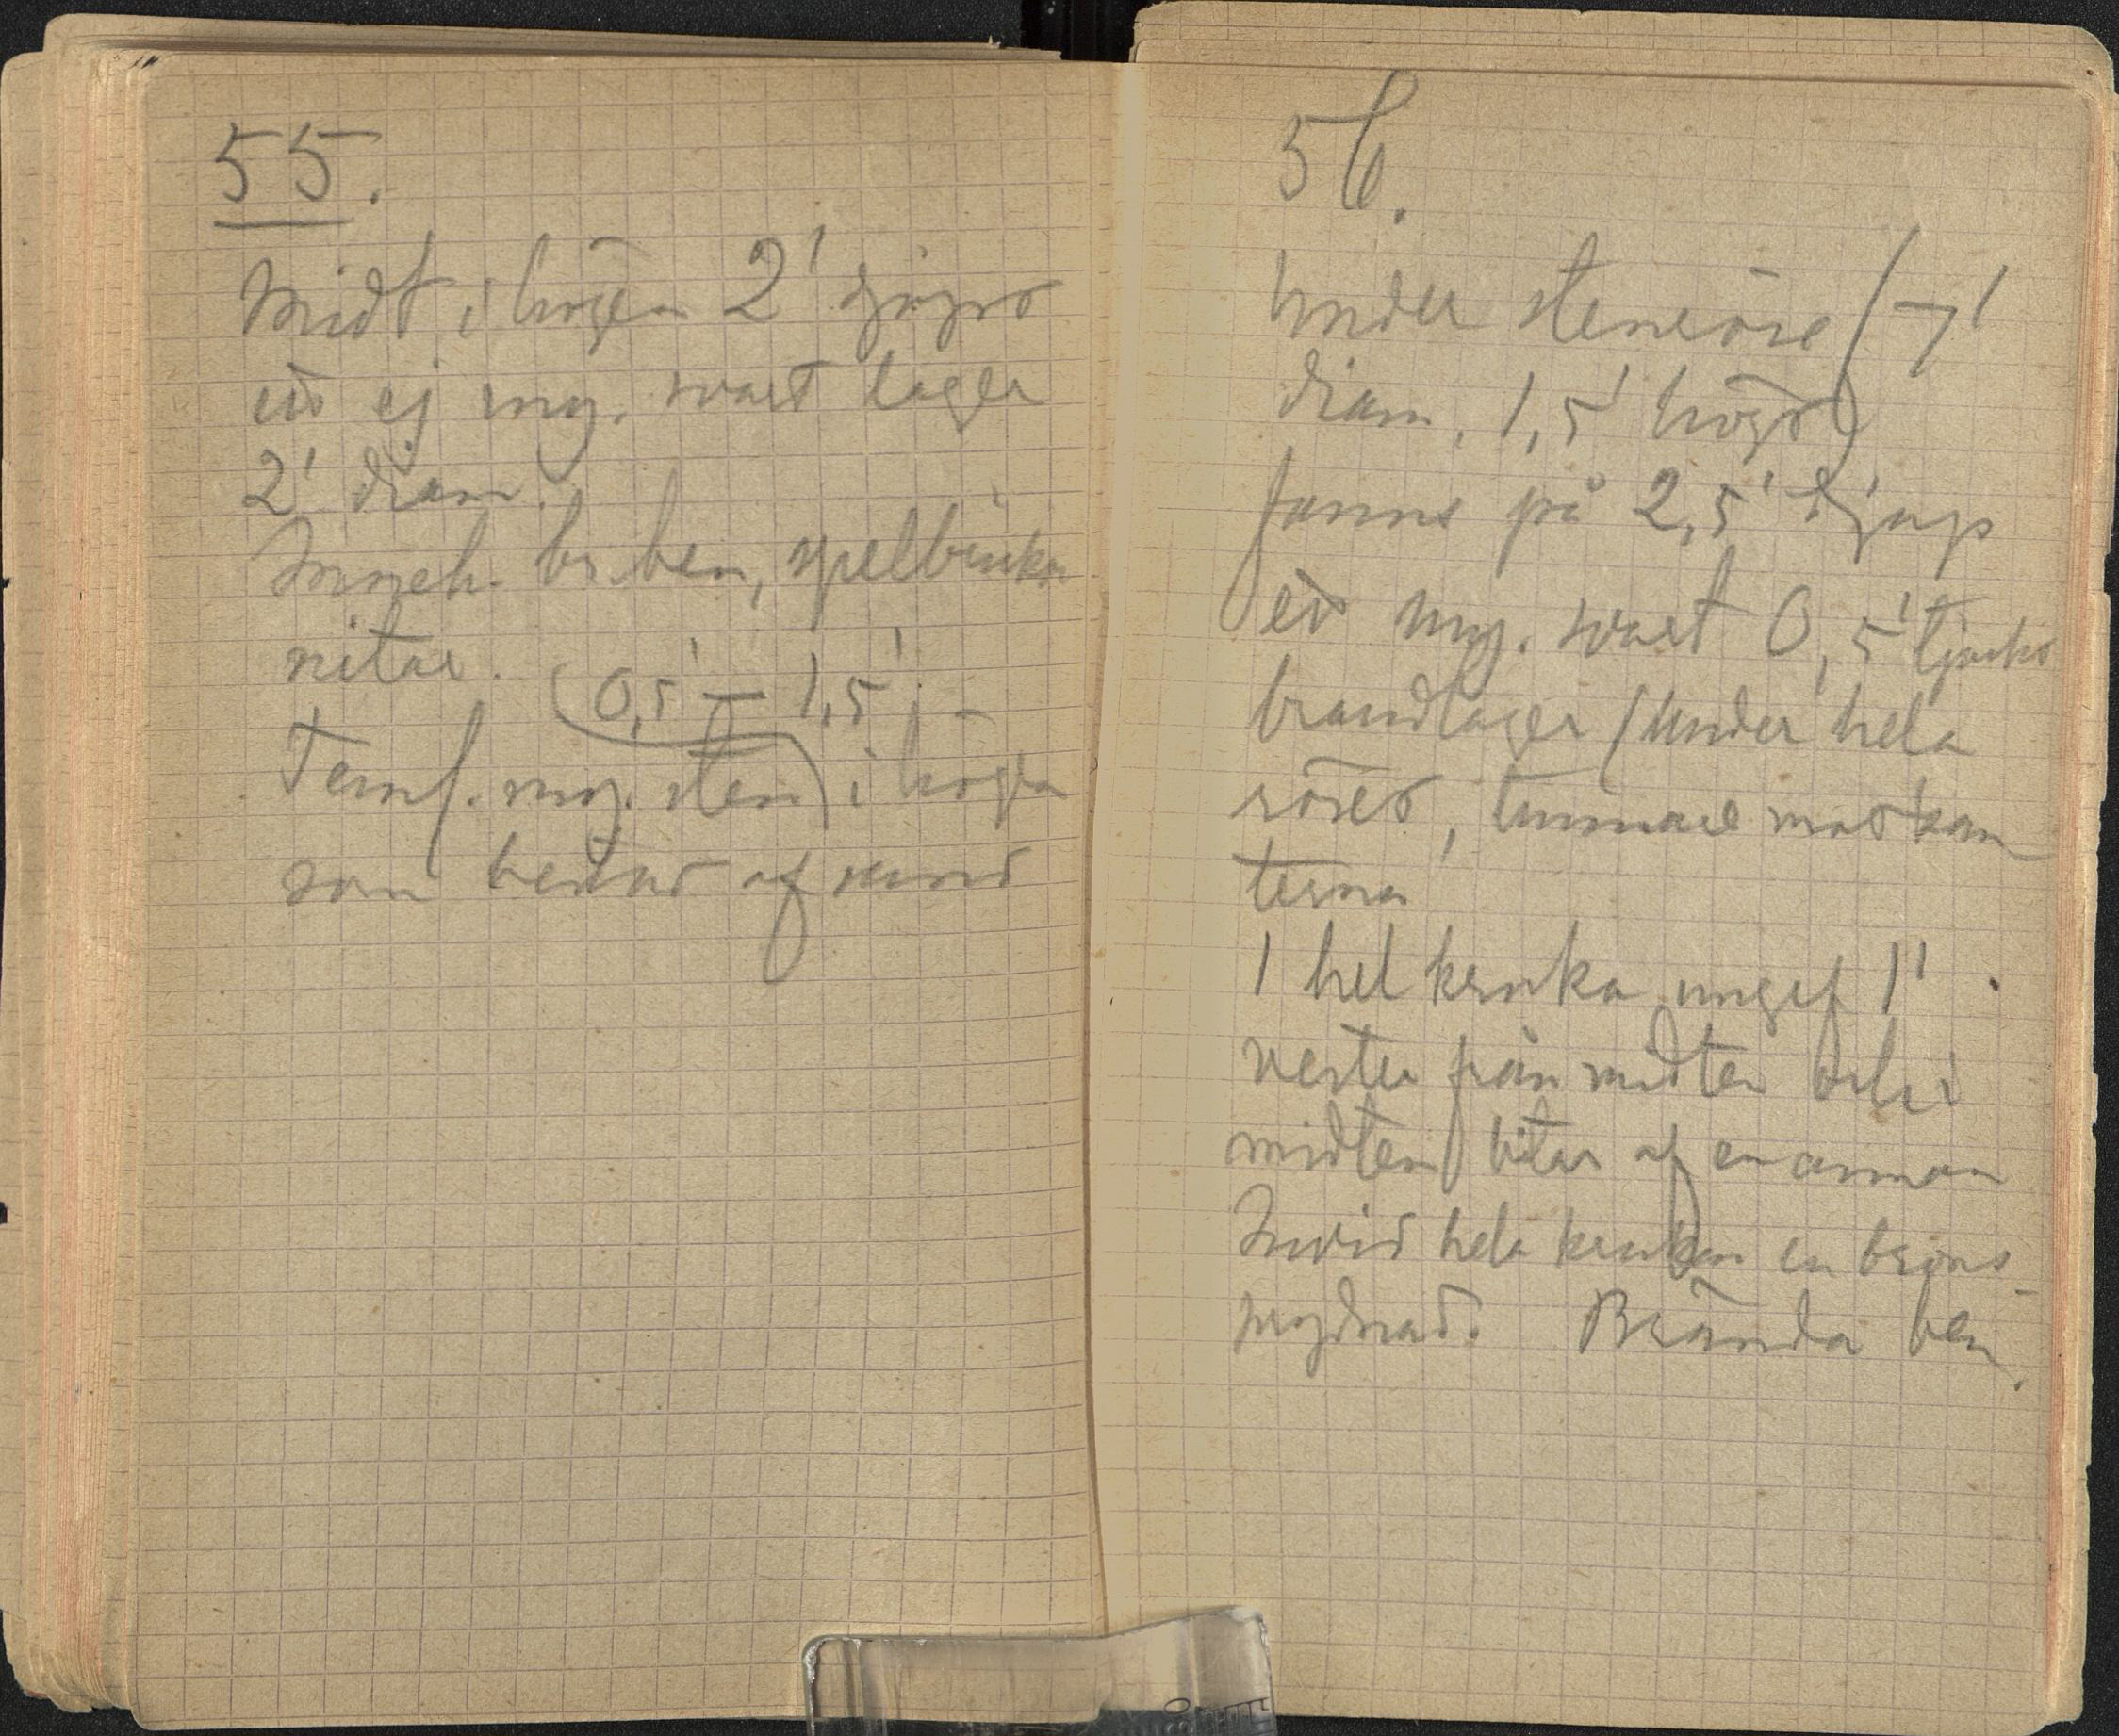 55.
Midt i högen 2' djupt
ett ej myg. svart lager
2' diam.
Inneh. br. ben, spelbrickor
nitar.
(0,5' – 1,5'
Temf. myg. sten) i högen
som bestod af sand
56.
Under stenröse (7'
diam, 1,5' högt)
fanns på 2,5' djup
ett myg. svart 0,5' tjockt
brandlager (under hela
röset, tunnare mot kan-
terna
1 hel kruka ungef 1'
vester från midten och i
midten bitar af en annan
Invid hela krukan en brons-
prydnad. Brända ben.